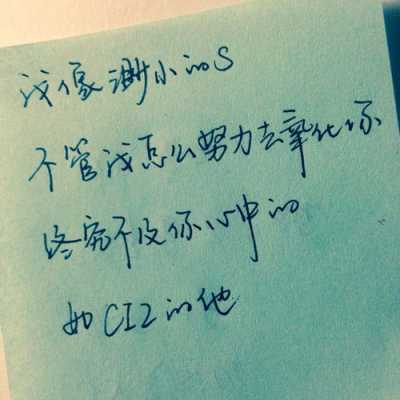 我像渺小的S
不管我怎么努力去氧化你
终究不及你心中的
如Cl2的他